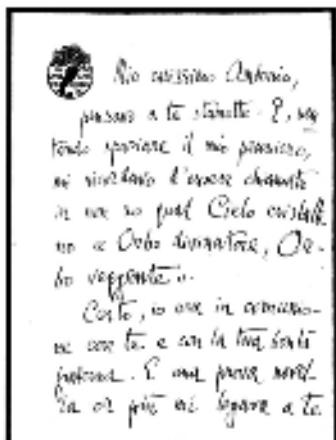 Mio carissimo Antonio,
pensavo a te stanotte. E, sen
tendo spaziare il mio pensiero,
mi ricordavo d'essere chiamato
in non so qual Cielo cristalli
no "Orbo divinatore, Or-
bo veggente".
Certo, io ero in comunio-
ne con te e con la tua bontà
profonda. E una prova novel-
la di più mi legava a te